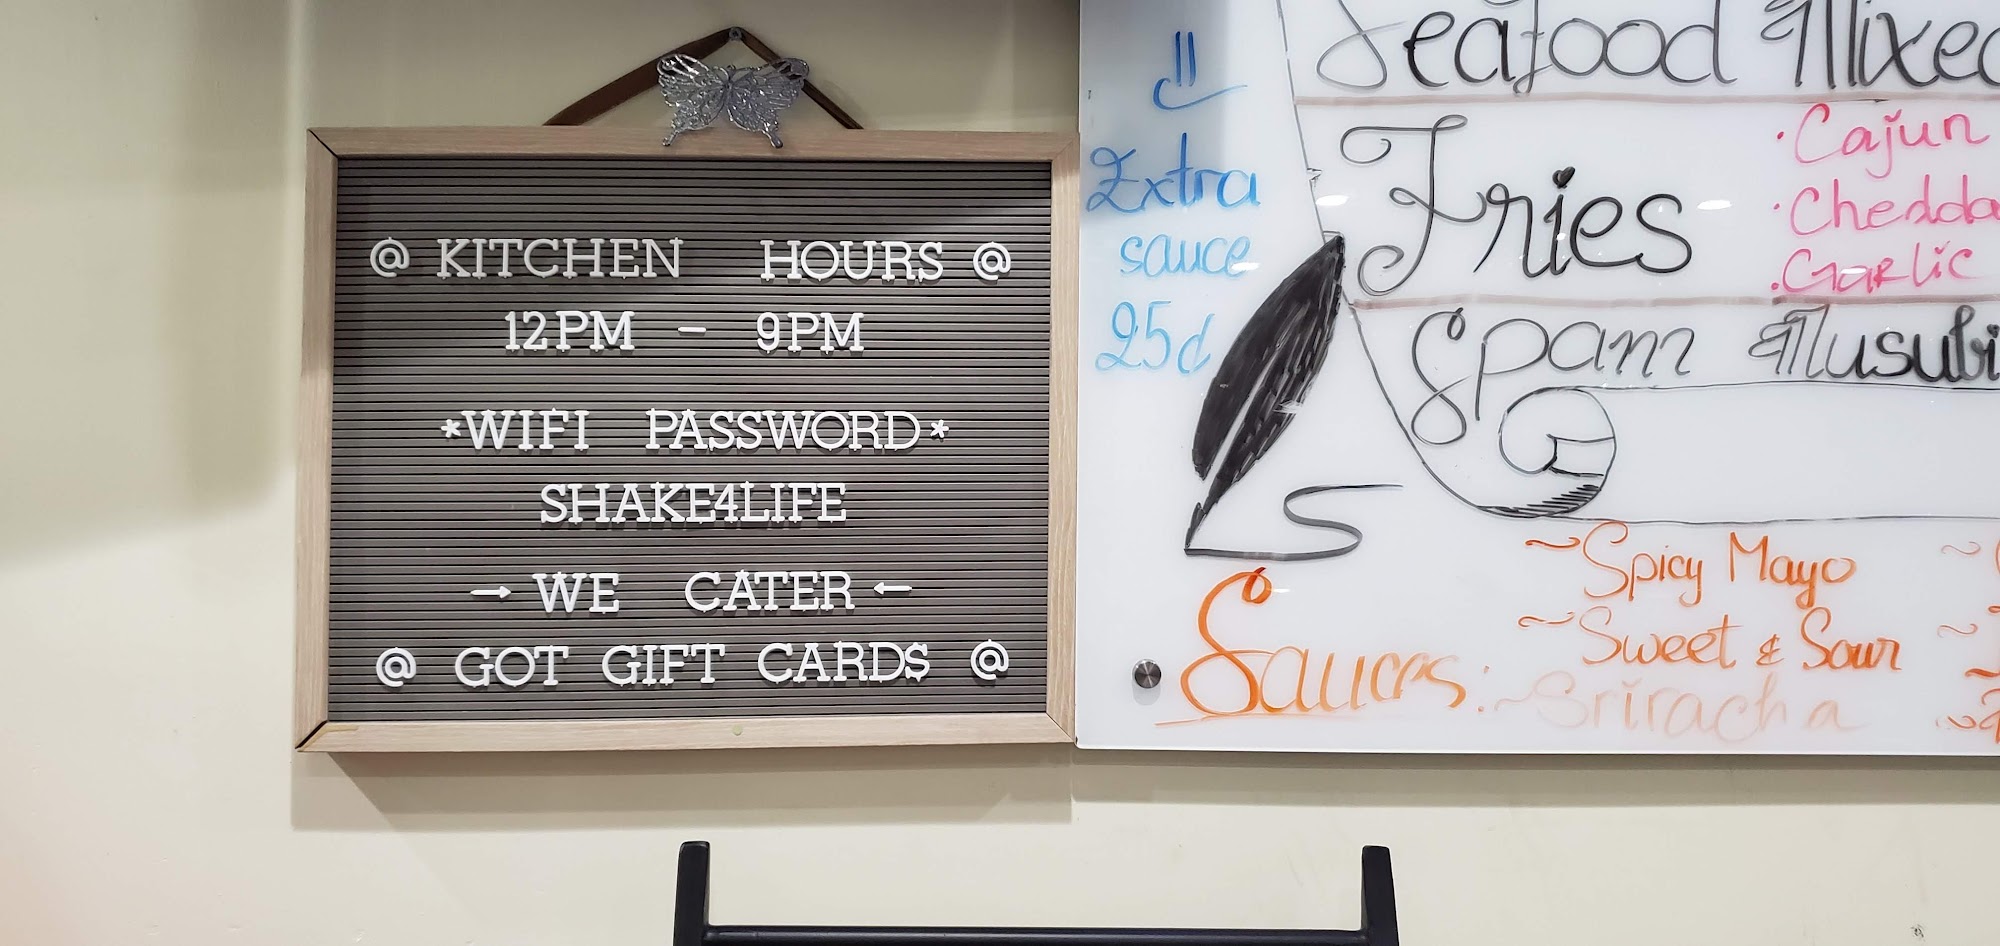 @ KITCHEN HOURS @
12PM - 9PM
*WIFI PASSWORD*
SHAKE4LIFE
→ WE CATER ←
@ GOT GIFT CARDS @
Extra
sauce
25¢
Seafood Mixed
Fries
• Cajun
• Chedda
• Garlic
Spam Musubi
Sauces:
~ Spicy Mayo
~ Sweet & Sour
~ Sriracha